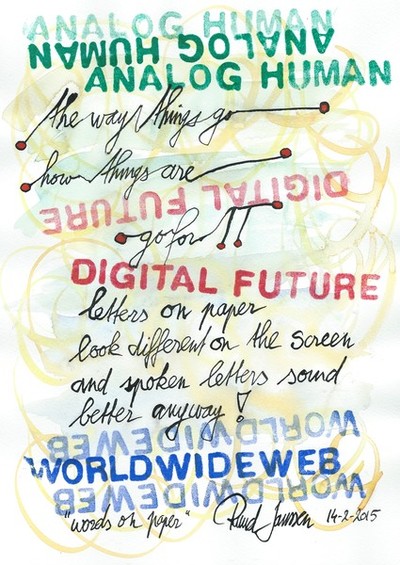 ANALOG HUMAN
ANALOG HUMAN
ANALOG HUMAN
the way things go
how things are
DIGITAL FUTURE
go for !!
DIGITAL FUTURE
letters on paper
look different on the screen
and spoken letters sound
better anyway!
WORLDWIDEWEB
WORLDWIDEWEB
WORLDWIDEWEB
"words on paper" Ruud Janssen 14-2-2015